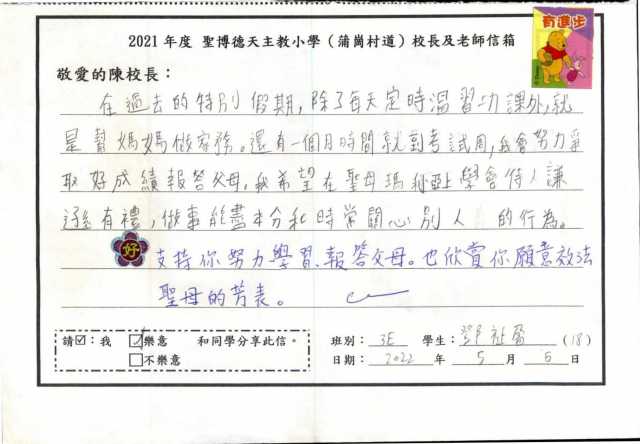 有進步
2021 年度 聖博德天主教小學（蒲崗村道）校長及老師信箱
敬愛的陳校長：
在過去的特別假期，除了每天定時溫習功課外，就
是幫媽媽做家務。還有一個月時間就到考試周，我會努力爭
取好成績報答父母。我希望在聖母瑪利亞上學會待人謙
遜有禮，做事能盡本分和時常關心別人 的行為。
好
支持你努力學習、報答父母。也欣賞你願意效法
聖母的芳表。
請☑：我 ☑樂意 和同學分享此信。
□不樂意
班別： 3E 學生： 鄧祉 (18)
日期： 2022 年 5 月 6 日